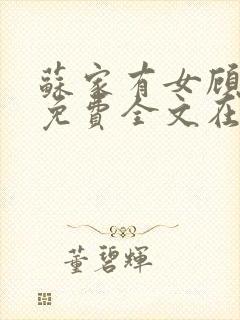 蘇家有女顧
免費全文在
董碧輝